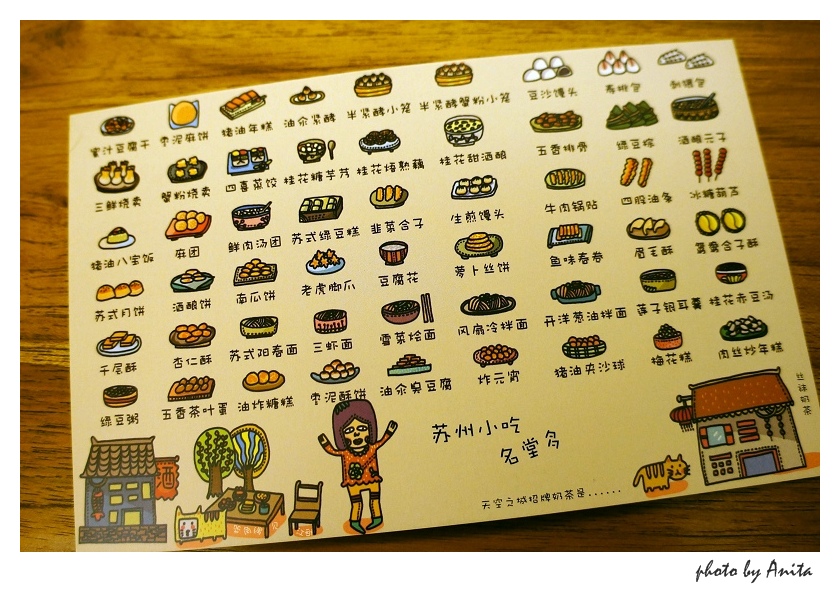 蜜汁豆腐干 枣泥麻饼 猪油年糕 油氽紧酵 半紧酵小笼 半紧酵蟹粉小笼 豆沙馒头 寿桃包 刺猬包
三鲜烧卖 蟹粉烧卖 四喜菜饺 桂花糖芋艿 桂花焐熟藕 桂花甜酒酿 五香排骨 绿豆粽 酒酿元子
猪油八宝饭 麻团 鲜肉汤团 苏式绿豆糕 韭菜合子 生煎馒头 牛肉锅贴 四股油条 冰糖葫芦
苏式月饼 酒酿饼 南瓜饼 老虎脚爪 豆腐花 萝卜丝饼 鱼味春卷 眉毛酥 鸳鸯合子酥
千层酥 杏仁酥 苏式阳春面 三虾面 雪菜烩面 风扇冷拌面 开洋葱油拌面 莲子银耳羹 桂花赤豆汤
绿豆粥 五香茶叶蛋 油炸糖糕 枣泥酥饼 油氽臭豆腐 炸元宵 猪油夹沙球 梅花糕 肉丝炒年糕
苏州小吃
名堂多
酒
丝袜奶茶
天空之城招牌奶茶是......
photo by Anita